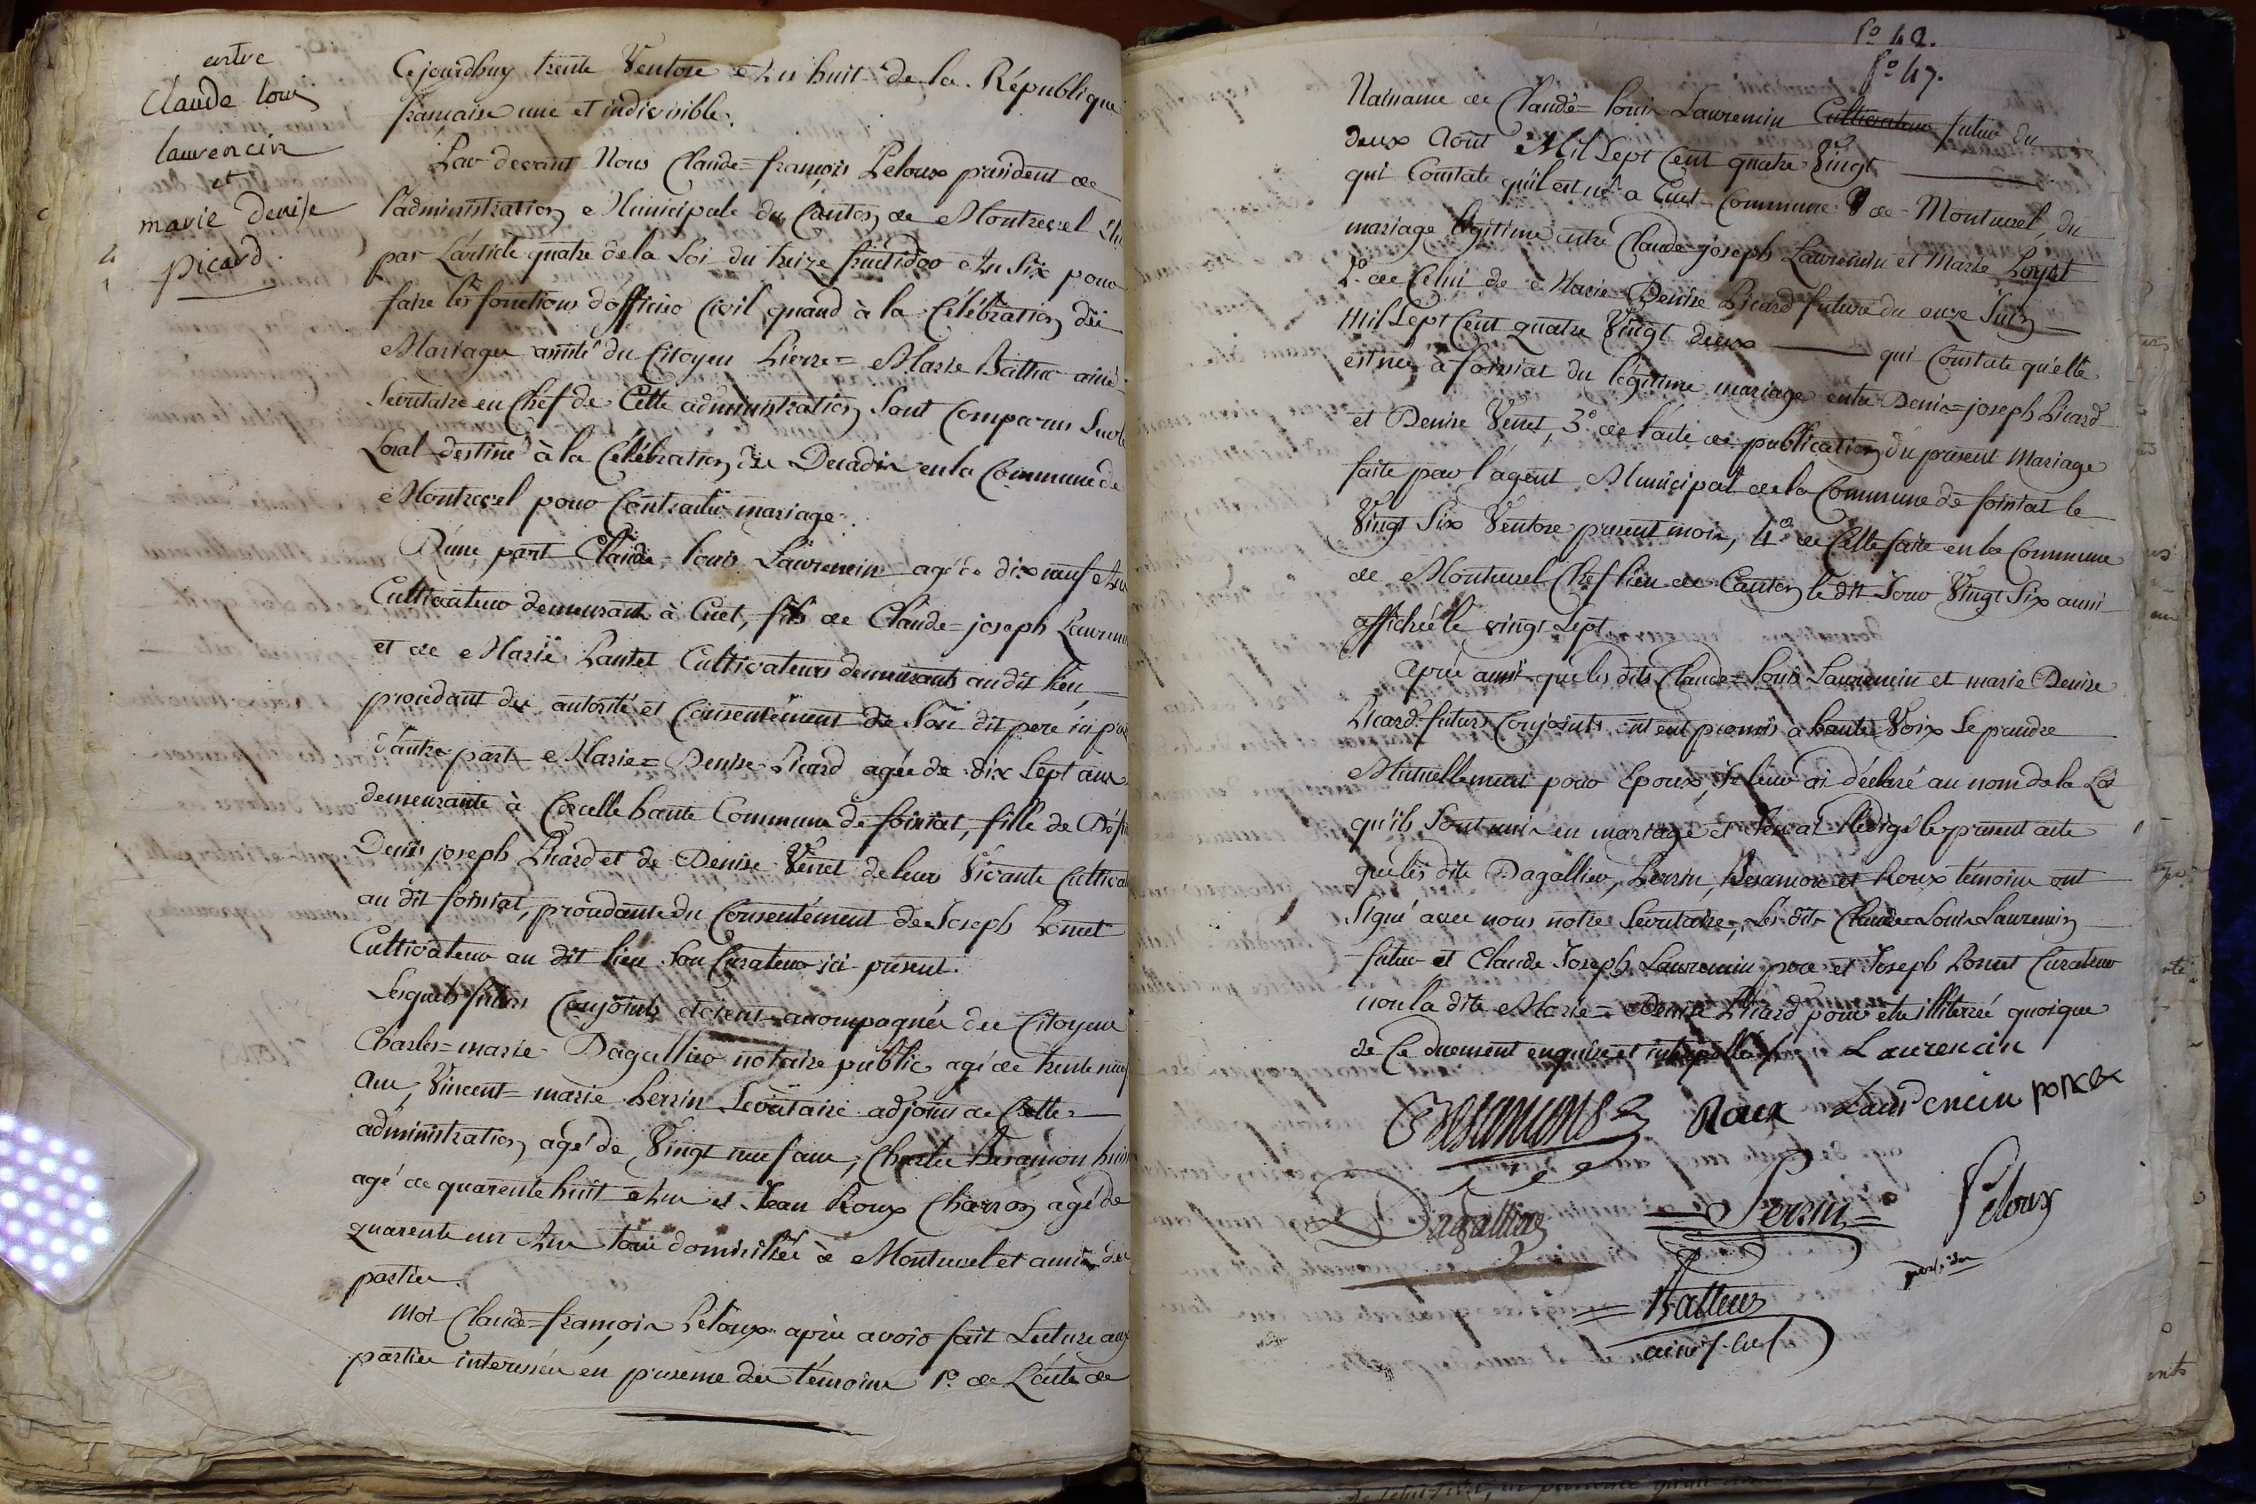 entre
Claude louis
laurencin
et
marie denise
picard
Cejourdhuy trente Ventose An huit de la République
francaise une et indivisible.
Par devant Nous Claude=françois Peloux président de
l'administration Municipale du Canton de Montrevel
par L'article quatre de la Loi du treize fructidor An Six pour
faire les fonctions d'officier Civil quand à la Célébration des
Mariages assisté du Citoyen Pierre=Marie Batteur ainé
Secretaire en Chef de Cette administration Sont Comparus
Local destiné à la Célébration des Decadis en la Commune de
Montrevel pour Contracter mariage.
D'une part Claude=louis Laurencin agé de dix neuf Ans
Cultivateur demeurant à Cuet, fils de Claude=joseph
et de Marie Cultivateurs demeurants au dit lieu
procedant des autorité et Consentement de Son dit pere
d'autre part Marie=Denise Picard agée de dix Sept ans
demeurante à haute Commune de foissiat, fille de
Denis joseph Picard et de Denise Venet de leurs Vivants
au dit foissiat, procedante du Consentement de Joseph Poncet
Cultivateur au dit lieu Son Curateur ici présent.
Lesquels futurs Conjoints étoient accompagnés des Citoyens
Charles=marie Dagallier notaire public agé de trente neuf
ans, Vincent=marie Perrin Secrétaire adjoint de Cette
administration agé de Vingt neuf ans, Charles Besançon
agé de quarente huit Ans et Jean Roux Charron agé de
quarente un Ans tous domiciliés à Montrevel et amis des
parties.
Moi Claude=françois Peloux après avoir fait Lecture aux
parties interessées en présence des témoins 1.o de L'acte de
f.o 42.
f.o 47.
Naissance de Claude=louis Laurencin Cultivateur futur du
deux Aout Mil Sept Cent quatre Vingt
qui Constate qu'il est né a Cuet Commune de Montrevel, du
mariage légitime entre Claude=joseph Laurencin et Marie
2.o de Celui de Marie Denise Picard future du onze Juin
Mil Sept Cent quatre Vingt deux qui Constate qu'elle
est née à foissiat du légitime mariage entre Denis=joseph Picard
et Denise Venet, 3.o de l'acte de publication du présent Mariage
faite par l'agent Municipal de la Commune de foissiat le
Vingt Six Ventose present mois, 4.o de Celle faite en la Commune
de Montrevel Chef lieu de Canton le dit Jour Vingt Six aussi
affichée le vingt Sept
après aussi que les dits Claude=Louis Laurencin et marie Denise
Picard futurs Conjoints ont eut promis à haute Voix Se prendre
Mutuellement pour Epoux, Je leur ai déclaré au nom de la Loi
qu'ils Sont unis en mariage et J'en ai Rédigé le present acte
que les dits Dagallier, Perrin, Besançon et Roux témoins ont
Signé avec nous notre Secretaire, Les dits Claude=Louis Laurencin
futur et Claude Joseph Laurencin pere et Joseph Poncet Curateur
non la dite Marie=Denise Picard pour etre illiterée quoique
de Ce duement enquise et interpellée Laurencin
Besançon Roux Laurencin poncet
Dagallier Perrin Peloux
président
Batteur
ainé S. chef